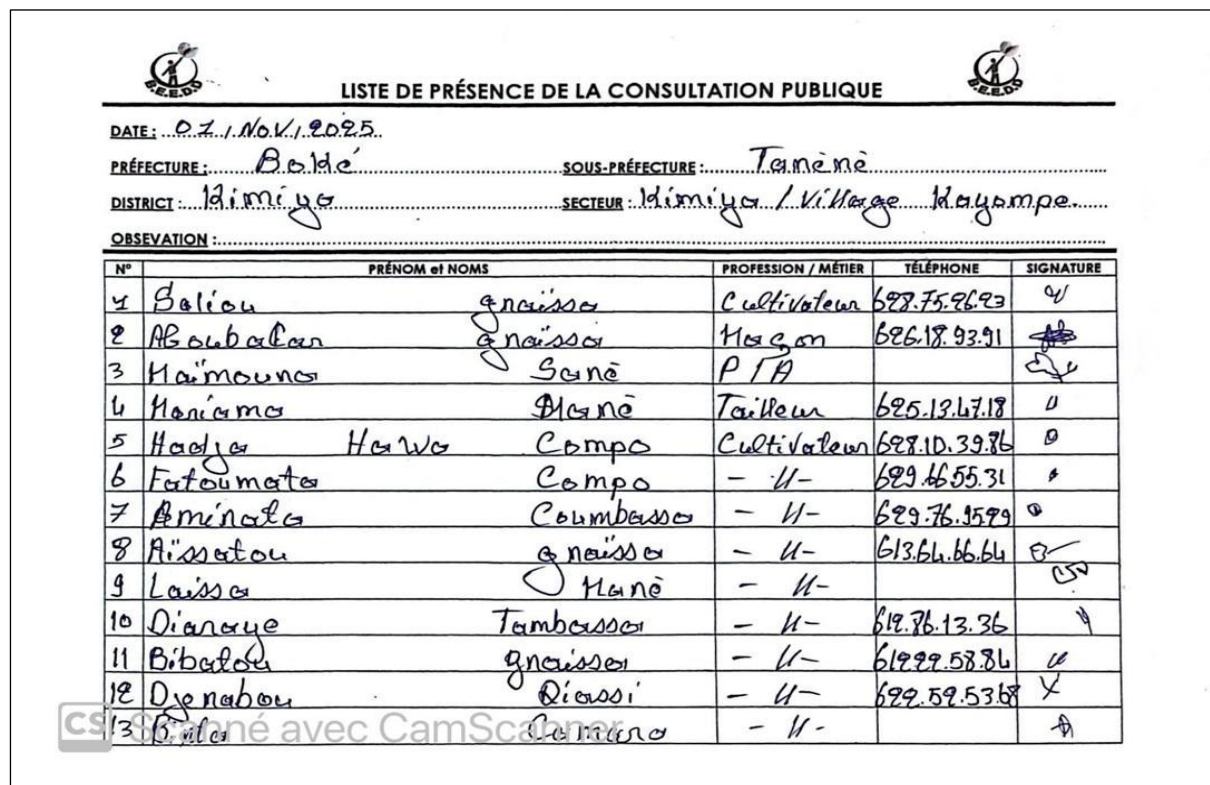 B.E.E.D.D
B.E.E.D.D
LISTE DE PRÉSENCE DE LA CONSULTATION PUBLIQUE
DATE : 01 / NOV / 2025
PRÉFECTURE : Boké SOUS-PRÉFECTURE : Tanènè
DISTRICT : Kimiya SECTEUR : Kimiya / Village Kayompe.
OBSEVATION :
N° PRÉNOM et NOMS PROFESSION / MÉTIER TÉLÉPHONE SIGNATURE
1 Saliou gnaïssa Cultivateur 628.75.26.23
2 Aboubacar gnaïssa Maçon 626.18.93.91
3 Maïmouna Sanè PTA
4 Mariama Manè Tailleur 625.13.47.18
5 Hadja Hawa Compo Cultivateur 628.10.39.86
6 Fatoumata Compo - 11- 629.66.55.31
7 Aminata Coumbassa - 11- 629.76.9529
8 Aïssatou gnaïssa - 11- 613.64.66.64
9 Laissa Manè - 11-
10 Diaraye Tambassa - 11- 612.86.13.36
11 Bibatou gnaissa - 11- 61222.58.84
12 Djenabou Diassi - 11- 622.52.5368
13 Camara - 11-
CS Scanné avec CamScanner